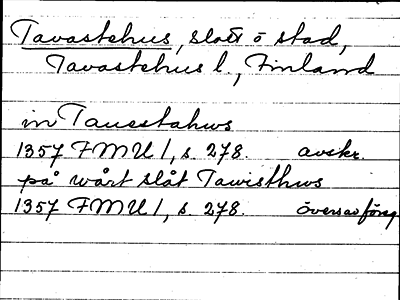 Tavastehus, slott o stad,
Tavastehus l., Finland
in Tauestahws
1357 FMU 1, s. 278. avskr.
på wårt slåt Tawisthws
1357 FMU 1, s. 278. övers av föreg